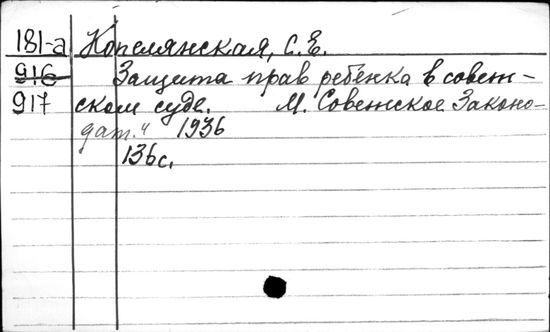 181-а Копелянская, С.Е.
916 Защита прав ребенка в совет-
917 ском суде. М. Советское Законо-
дат." 1936
136с.